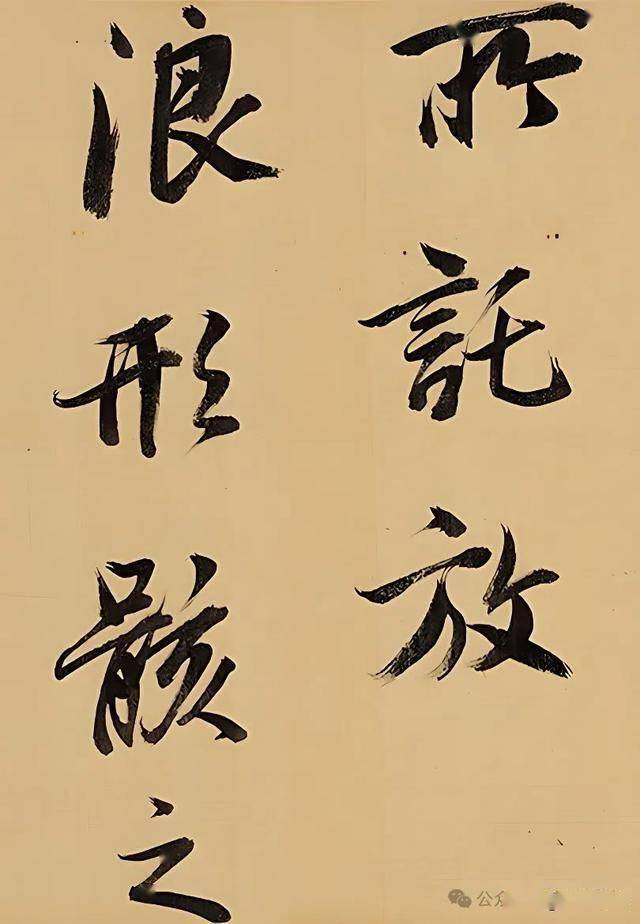 所託放
浪形骸之
公众